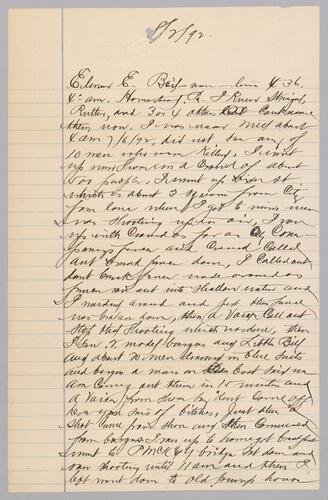 8/2/92.
Elmer E. Bales
4th ave. Homestead, Pa. I knew
Rutter, and 3 or 4 others
them now. I was near Mill about
4 am 7/6/92, did not see any of
10 men who were killed, I went
up now from in a crowd of about
50 or people, I went up River st
which is about 3 squares from City
Farm lane, when I got to mines men
was shooting up in air, I ran
up with Crowd as far as Com-
panys fence and Crowd Called
out break fence down, I Called out
dont break fence
fence and out into shallow water and
I marched around and just then fence
was broken down, then a Voice Call out
Stop that Shooting which was done, then
I saw 2 model barges and Little Bill
and about 20 men dressed in blue Suits
and began a man on East Said we
Are Coming out there in 10 minutes and
a Voice from shore by dont Come off
here you sons of bitches, Just then a
Shot came from shore and then Commenced
from barges I ran up to home got breakfast
went to PMcK & Y bridge sat down and
saw shooting until 11 am and then I
left went down to old pump house